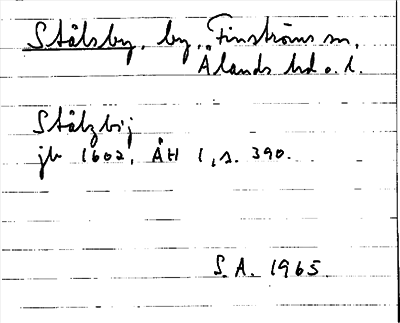 Stålsby, by, Finströms sn,
Ålands hd o. l.
Stålzbÿ
jb 1602, ÅH 1, s. 390.
S.A. 1965